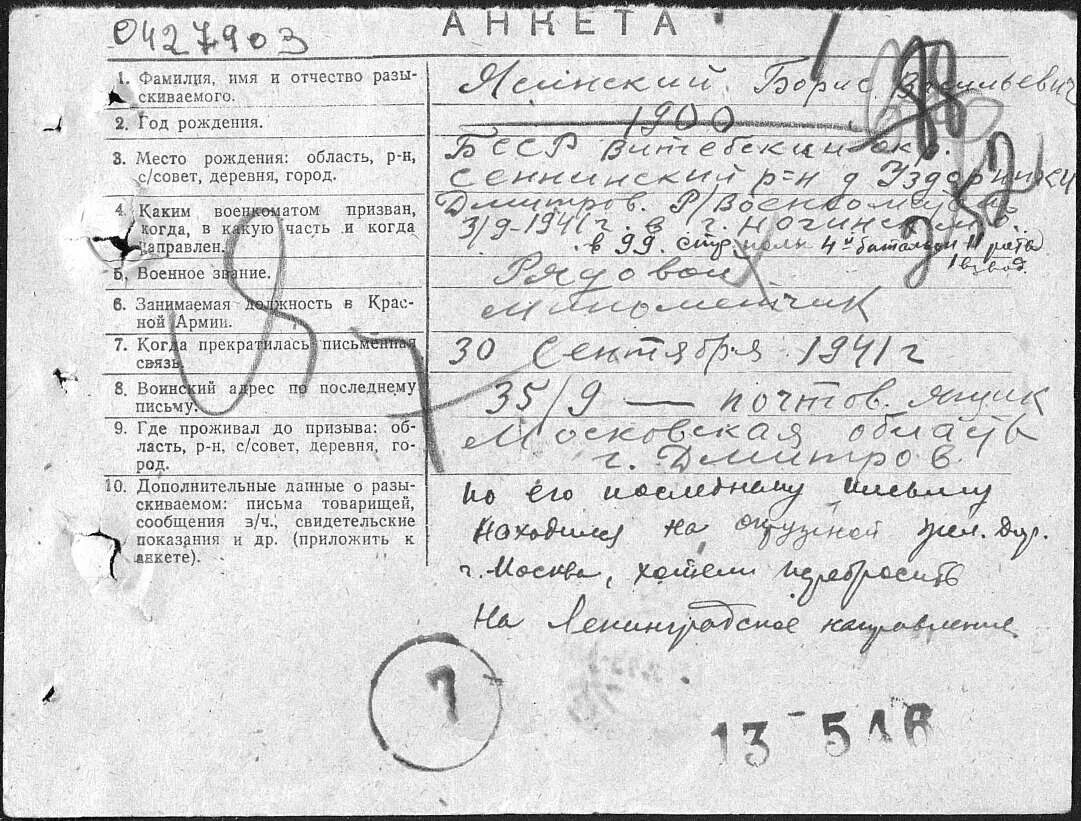 0427903
АНКЕТА
1. Фамилия, имя и отчество разы-
скиваемого.
Ясинский Борис Васильевич
2. Год рождения.
1900
3. Место рождения: область, р-н,
с/совет, деревня, город.
БССР Витебский окр.
Сеннинский р-н д
4. Каким военкоматом призван,
когда, в какую часть и когда
направлен.
Дмитров. Р/Военкоматом
3/9-1941 г. в г. Ногинск
в 99. стр. полк 4й батальон 11 рота
1 взвод.
5. Военное звание.
Рядовой
6. Занимаемая должность в Крас-
ной Армии.
Минометчик
7. Когда прекратилась письменная
связь.
30 Сентября 1941 г
8. Воинский адрес по последнему
письму.
35/9 — почтов. ящик
9. Где проживал до призыва: об-
ласть, р-н, с/совет, деревня, го-
род.
Московская область
г. Дмитров.
10. Дополнительные данные о разы-
скиваемом: письма товарищей,
сообщения в/ч., свидетельские
показания и др. (приложить к
анкете).
по его последнему письму
находился на окружной жел. дор.
г. Москва, хотели перебросить
на Ленинградское направление
7
13-516